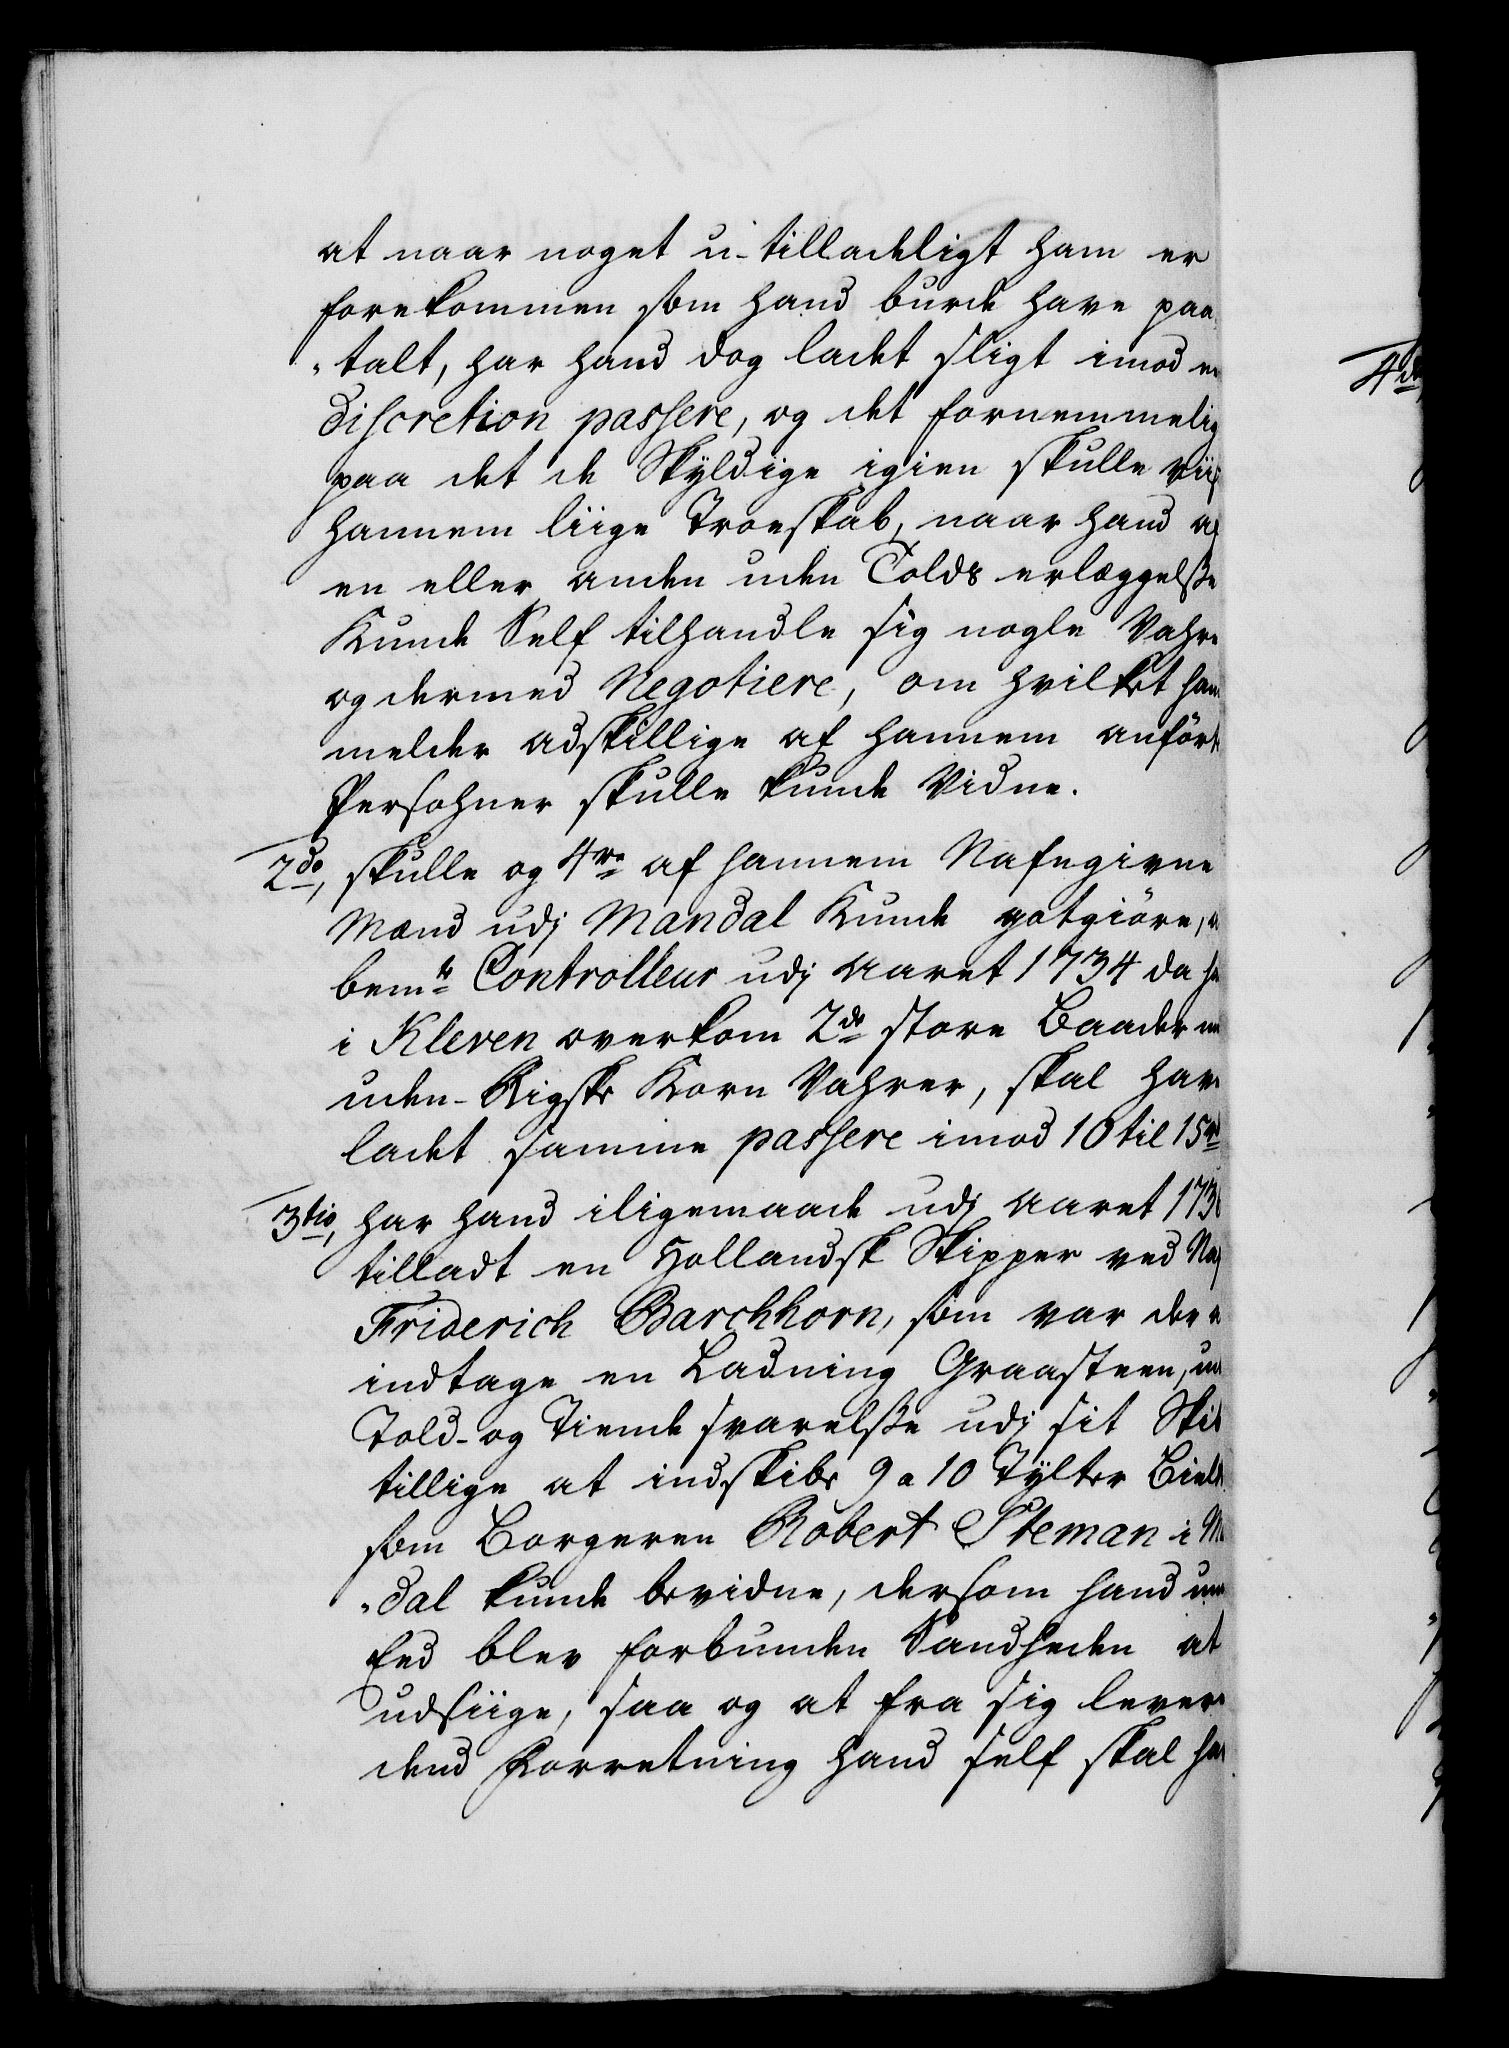 at naar noget u-tilladeligt ham er
forekommen som hand burde have paa
„talt, har hand dog ladet sligt imod en
discretion passere, og det fornemmelig
paa det de Skÿldige igien skulle viis
hannem liige Troeskab, naar hand af
en eller anden uden Tolds erlæggelsse
Kunde Self tilhandle sig nogle Vahre
og dermed Negotiere, om hvilket han
melder adskillige af hannem anførte
Persohner skulle kunde Vidne.
2do, skulle og 4re af hannem Nafngivne
Mænd udj Mandal Kunde gotgiøre,
bemte Controlleur udj Aaret 1734 da ha
i Kleven overkom 2de store Baader me
uden-Rigske Korn Vahrer, skal have
ladet samme passere imod 10 til 15 rd
3tio, har hand iligemaade udj Aaret 173
tilladt en Hollandsk Skipper ved Naf
Friderich Barchhorn, som var der
indtage en Ladning Graasteen, ud
Told- og Tiende svarelsse udj sit Skib
tillige at indskibe 9 a 10 Tÿlter Biel
som Borgeren Robert Steman i M
„dal kunde bevidne, dersom hand un
Eed blev forbunden Sandheden at
udsiige, saa og at fra sig levere
dend Forretning hand self skal ha
4de